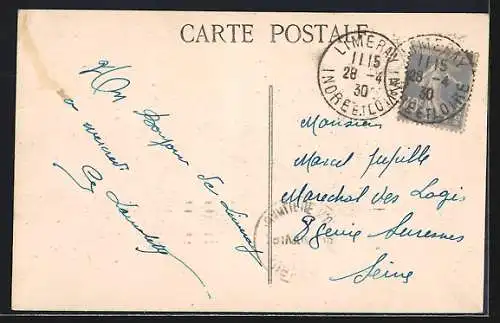 CARTE POSTALE
LIMERAY
1115
28 -4
30
INDRE ET LOIRE
LIMERAY
1115
28 -4
30
INDRE ET LOIRE
Un bonjour de Limeray
a mercredi
Monsieur
Marcel Jupille
Marechal des Logis
8 Genie Suresnes
Seine